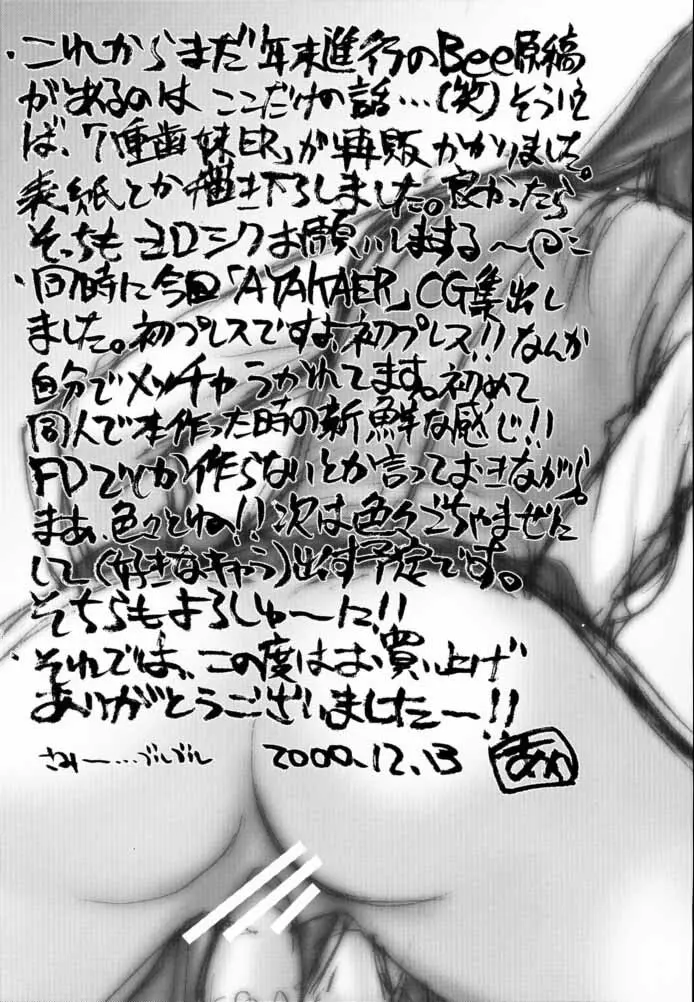 ・これからまだ年末進行のBee原稿
があるのは ここだけの話…(笑)そういえ
ば、「八重歯妹ER」が再販かかりました。
表紙とか描き下ろしました。良かったら
そっちもヨロシクお願いしまする〜
・同時に今回「AYAKAER」CG集出し
ました。初プレスですよ、初プレス!!なんか
自分でメッチャうかれてます。初めて
同人で本作った時の新鮮な感じ!!
FDでしか作らないとか言っておきながら。
まあ、色々とね!!次は色々ごちゃまぜに
して(好きなキャラ)出す予定です。
そちらもよろしゅ〜に!!
・それでは、この度はお買い上げ
ありがとうございましたー!!
さみー…ブルブル 2000.12.13